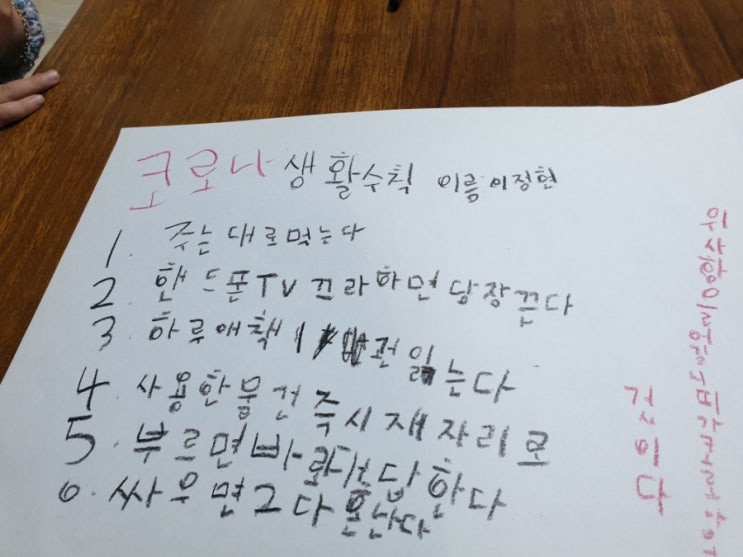 코로나 생활수칙 이름 이정현
1. 주는대로먹는다
2. 핸드폰TV끄라하면당장끈다
3. 하루애책1권읽는다
4. 사용한물건즉시재자리로
5. 부르면빠
6. 싸우면2다혼난다
위사항
것이다